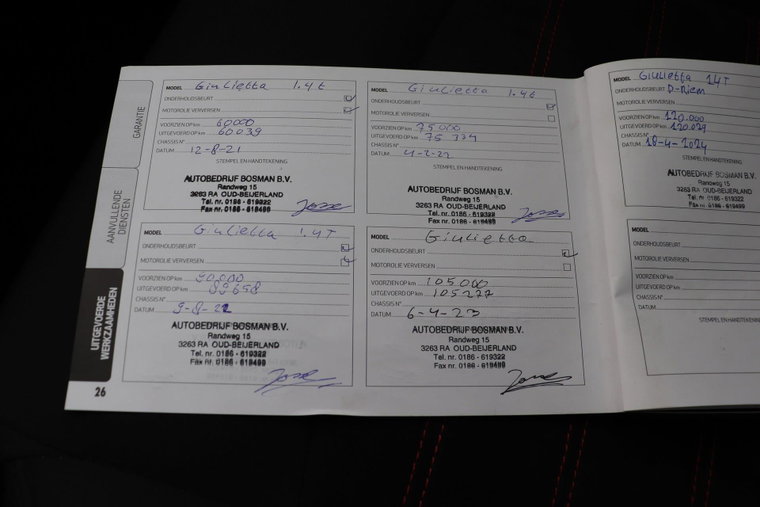 GARANTIE
AANVULLENDE
DIENSTEN
UITGEVOERDE
WERKZAAMHEDEN
26
MODEL Giulietta 1.4t
ONDERHOUDSBEURT
MOTOROLIE VERVERSEN
VOORZIEN OP km 60000
UITGEVOERD OP km 60039
CHASSIS N°
DATUM 12-8-21
STEMPEL EN HANDTEKENING
AUTOBEDRIJF BOSMAN B.V.
Randweg 15
3263 RA OUD-BEIJERLAND
Tel. nr. 0186 - 619322
Fax nr. 0186 - 619499
MODEL Giulietta 1.4t
ONDERHOUDSBEURT
MOTOROLIE VERVERSEN
VOORZIEN OP km 75000
UITGEVOERD OP km 75334
CHASSIS N°
DATUM 4-2-22
STEMPEL EN HANDTEKENING
AUTOBEDRIJF BOSMAN B.V.
Randweg 15
3263 RA OUD-BEIJERLAND
Tel. nr. 0186 - 619322
Fax nr. 0186 - 619499
MODEL Giulietta 1.4T
ONDERHOUDSBEURT D-Riem
MOTOROLIE VERVERSEN
VOORZIEN OP km 120.000
UITGEVOERD OP km 120.027
CHASSIS N°
DATUM 18-4-2024
STEMPEL EN HANDTEKENING
AUTOBEDRIJF BOSMAN B.V.
Randweg 15
3263 RA OUD-BEIJERLAND
MODEL Giulietta 1.4T
ONDERHOUDSBEURT
MOTOROLIE VERVERSEN
VOORZIEN OP km 90000
UITGEVOERD OP km 89658
CHASSIS N°
DATUM 9-8-22
AUTOBEDRIJF BOSMAN B.V.
Randweg 15
3263 RA OUD-BEIJERLAND
Tel. nr. 0186 - 619322
Fax nr. 0186 - 619499
MODEL Giulietta
ONDERHOUDSBEURT
MOTOROLIE VERVERSEN
VOORZIEN OP km 105000
UITGEVOERD OP km 105277
CHASSIS N°
DATUM 6-4-23
AUTOBEDRIJF BOSMAN B.V.
Randweg 15
3263 RA OUD-BEIJERLAND
Tel. nr. 0186 - 619322
Fax nr. 0186 - 619499
MODEL
ONDERHOUDSBEURT
MOTOROLIE VERVERSEN
VOORZIEN OP km
UITGEVOERD OP km
CHASSIS N°
DATUM
STEMPEL EN HANDTEKENING